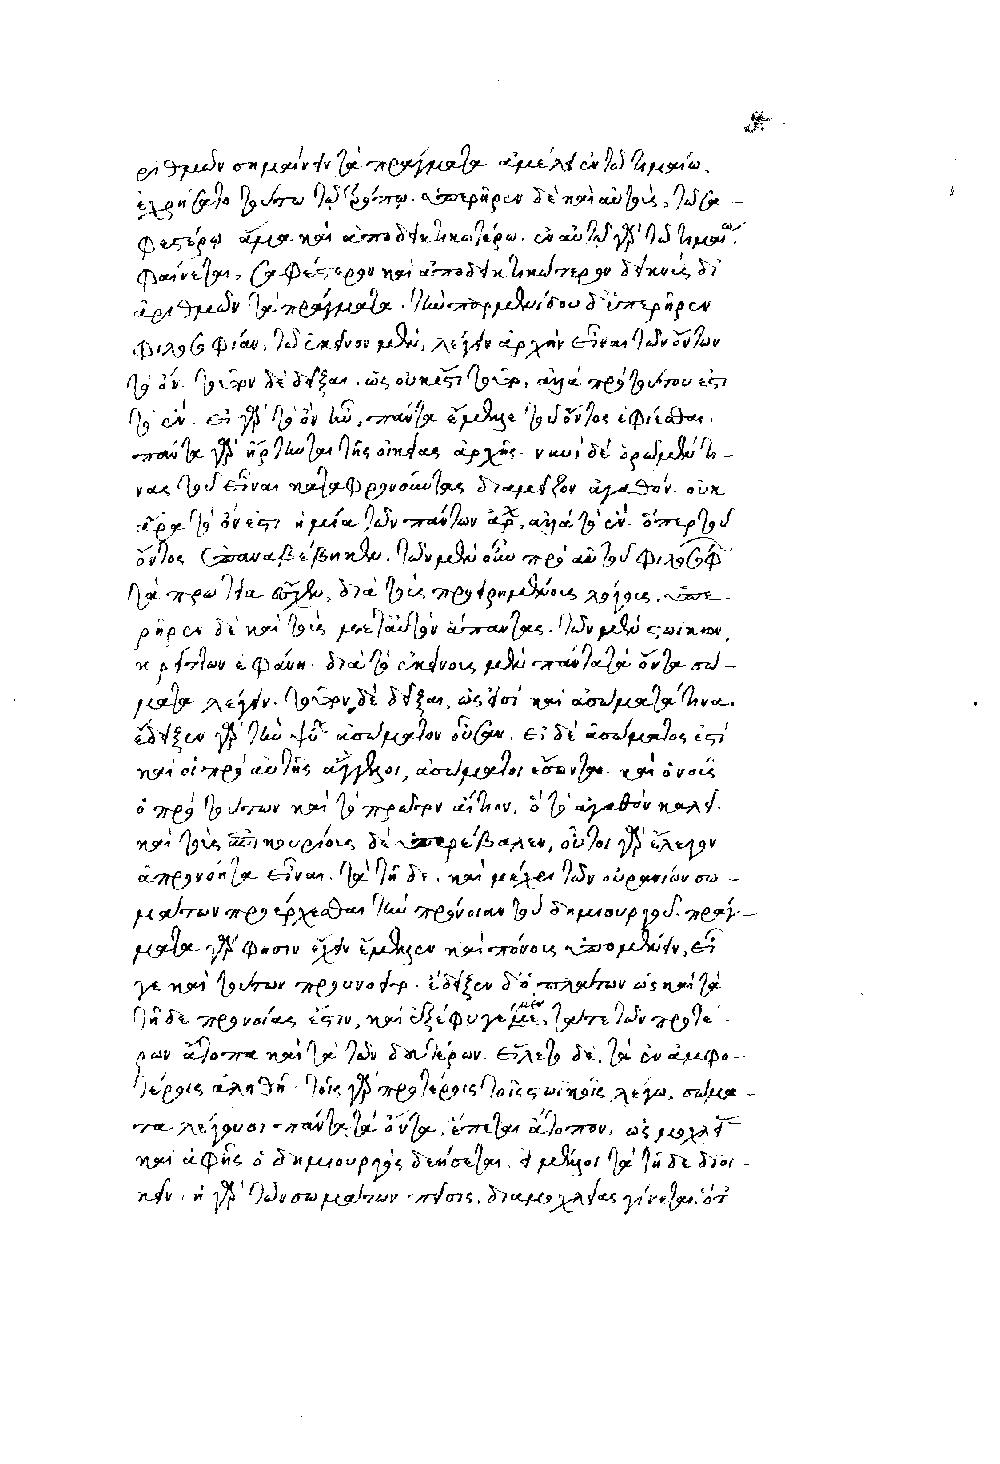 ριθμῶν σημαίνειν τὰ πράγματα ἀμέλει ἐν τῶ τιμαίω.
ἐχρήσατο τούτω τῶ τρόπω. ὑπερῆρεν δὲ καὶ αὐτοὺς, τῶ σα-
φεστέρω ἅμα καὶ ἀποδεικτικωτέρω. ἐν αὐτῶ γὰρ τῶ τιμαίω
φαίνεται, σαφέστερον καὶ ἀποδεικτικώτερον δεικνὺς δι
ἀριθμῶν τὰ πράγματα. τὴν παρμενίδου δ' ὑπερῆρεν
φιλοσοφίαν, τῶ ἐκεῖνον μὲν, λέγειν ἀρχὴν εἶναι τῶν ὄντων
τὸ ὄν. τοῦτον δὲ δεῖξαι. ὡς οὐκ ἔστι τοῦτο, ἀλλὰ πρὸ τούτου ἐστι
τὸ ἕν. εἰ γὰρ τὸ ὂν ἦν, πάντα ἔμελλε τοῦ ὄντος ἐφίεσθαι.
πάντα γὰρ ἤρτηται τῆς οἰκείας ἀρχῆς. νυνὶ δὲ ὁρῶμέν τι-
νας τοῦ εἶναι καταφρονοῦντας διὰ μεῖζον ἀγαθόν. οὐκ
ἄρα τὸ ὄν ἐστι ἡ μία τῶν πάντων ἀρχ, ἀλλὰ τὸ ἕν. ὅπερ τοῦ
ὄντος ἐπαναβέβηκεν. τῶν μὲν οὖν πρὸ αὐτοῦ φιλοσόφ
τὰ πρωτεῖα εἷλεν, διὰ τοὺς προειρημένους λόγους. ὑπε-
ρῆρεν δὲ καὶ τοὺς μετ' αὐτὸν ἅπαντας. τῶν μὲν στωικῶν,
κρείττων ἐφάνη. διὰ τὸ ἐκείνους μὲν πάντα τὰ ὄντα σώ-
ματα λέγειν. τοῦτον δὲ δεῖξαι, ὡς εἰσὶ καὶ ἀσώματά τινα.
ἔδειξεν γὰρ τὴν ψυ ἀσώματον οὖσαν. εἰ δὲ ἀσώματός ἐστι
καὶ οἱ πρὸ αὐτῆς ἄγγελοι, ἀσώματοι ἔσονται. καὶ ὁ νοῦς
ὁ πρὸ τούτων καὶ τὸ πρῶτον αἴτιον, ὃ τὸ ἀγαθὸν καλεῖ.
καὶ τοὺς ἐπικουρίους δὲ ὑπερέβαλεν, οὗτοι γὰρ ἔλεγον
ἀπρονόητα εἶναι. τὰ τῆδε. καὶ μέχρι τῶν οὐρανίων σω-
μάτων προέρχεσθαι τὴν πρόνοιαν τοῦ δημιουργοῦ. πράγ-
ματα γὰρ φασιν ἔχειν ἔμελλεν καὶ πόνους ὑπομένειν, εἴ
γε καὶ τούτων προυνοεῖτο. ἔδειξεν δ' ὁ πλάτων ὡς καὶ τὰ
τῆδε προνοίας ἐστιν, καὶ ἐξέφυγε μὲν, τά τε τῶν προτέ-
ρων ἄτοπα καὶ τὰ τῶν δευτέρων. εἵλετο δὲ, τὰ ἐν ἀμφο-
τέροις ἀληθῆ. τοῖς γὰρ προτέροις τοῖς στωικοῖς λέγω, σώμα-
τα λέγουσι πάντα τὰ ὄντα, ἕπεται ἄτοπον, ὡς μοχλεί
καὶ ἁφῆς ὁ δημιουργὸς δεήσεται. εἰ μέλλοι τὰ τῆδε διοι-
κεῖν. ἡ γὰρ τῶν σωμάτων πεῖσις, διὰ μοχλείας γίνεται. ὅτ